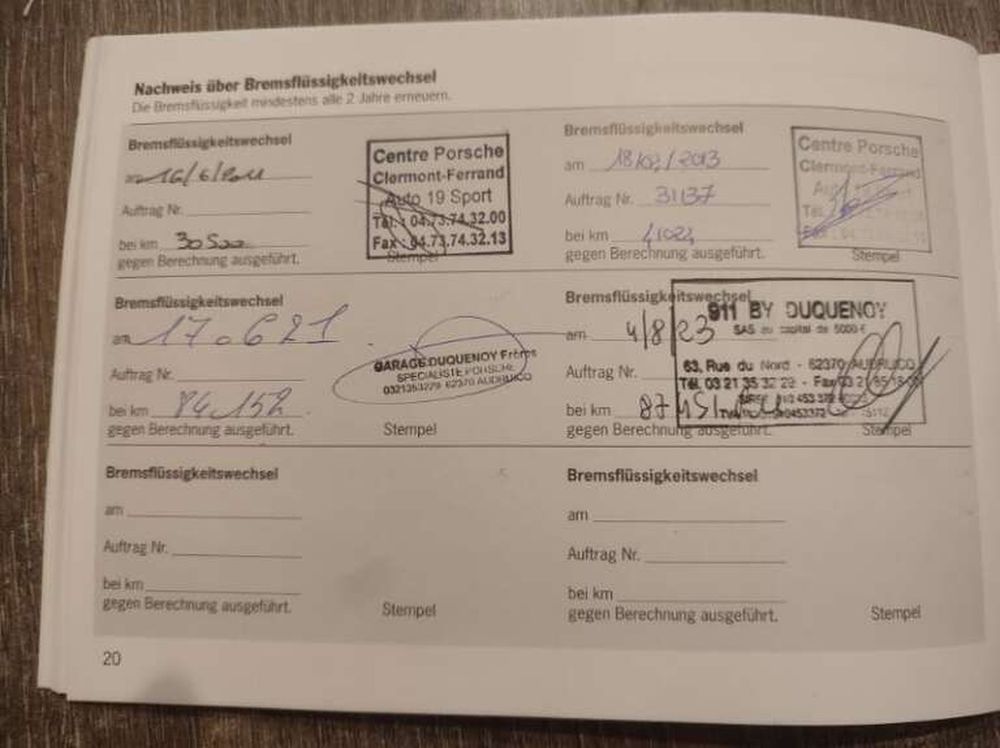 Nachweis über Bremsflüssigkeitswechsel
Die Bremsflüssigkeit mindestens alle 2 Jahre erneuern.
Bremsflüssigkeitswechsel
am 16/6/2011
Auftrag Nr.
bei km
gegen Berechnung ausgeführt.
Stempel
Centre Porsche
Clermont-Ferrand
Auto 19 Sport
Tél. : 04.73.74.32.00
Fax : 04.73.74.32.13
Bremsflüssigkeitswechsel
am 2013
Auftrag Nr. 31137
bei km
gegen Berechnung ausgeführt.
Stempel
Centre Porsche
Clermont-Ferrand
Bremsflüssigkeitswechsel
am 17.6 21
Auftrag Nr.
bei km 84.152
gegen Berechnung ausgeführt.
Stempel
GARAGE DUQUENOY Frères
SPECIALISTE PORSCHE
62370 AUDRUICQ
Bremsflüssigkeitswechsel
am 4/8/23
Auftrag Nr.
bei km
gegen Berechnung ausgeführt.
Stempel
911 BY DUQUENOY
SAS au capital de 5000 €
63, Rue du Nord - 62370 AUDRUICQ
Tél. 03 21 35 32 29 - Fax
Bremsflüssigkeitswechsel
am
Auftrag Nr.
bei km
gegen Berechnung ausgeführt.
Stempel
Bremsflüssigkeitswechsel
am
Auftrag Nr.
bei km
gegen Berechnung ausgeführt.
Stempel
20